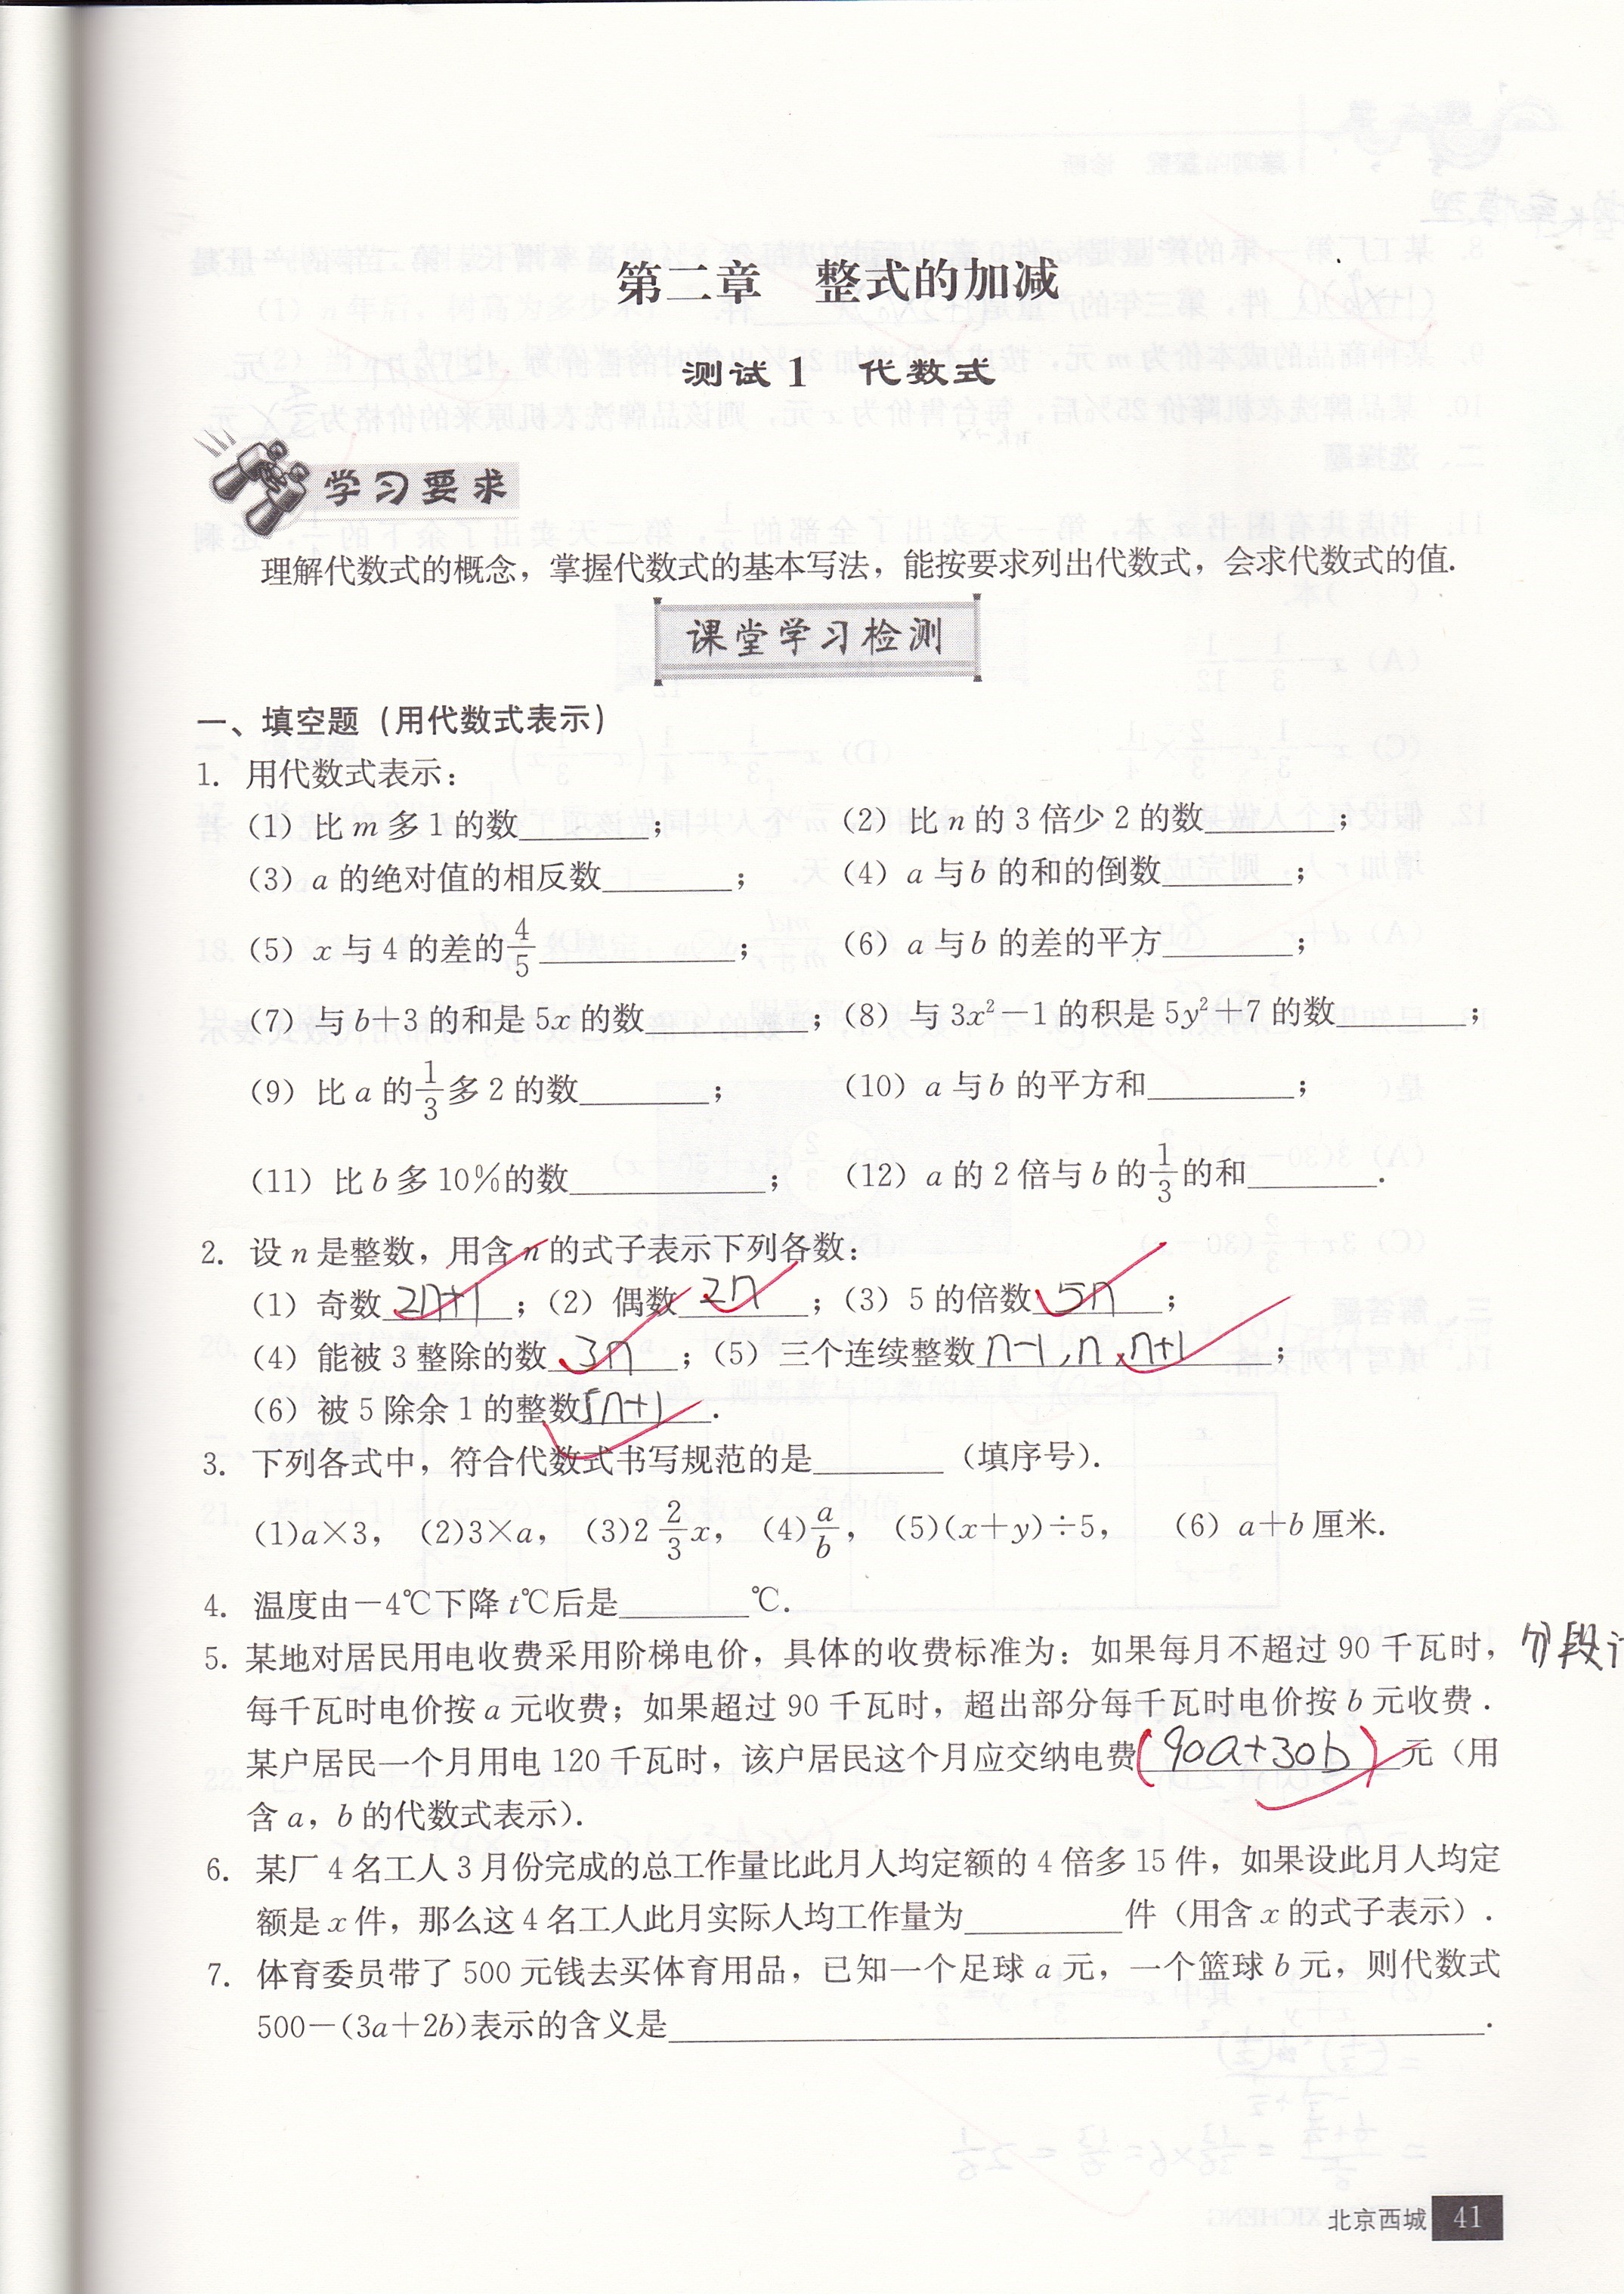 第二章　整式的加减
测试1　代数式
学习要求
理解代数式的概念，掌握代数式的基本写法，能按要求列出代数式，会求代数式的值．
课堂学习检测
一、填空题（用代数式表示）
1．用代数式表示：
（1）比m多1的数________；（2）比n的3倍少2的数________；
（3）a的绝对值的相反数________；（4）a与b的和的倒数________；
（5）x与4的差的4/5____________；（6）a与b的差的平方________；
（7）与b＋3的和是5x的数__________；（8）与3x²－1的积是5y²＋7的数________；
（9）比a的1/3多2的数________；（10）a与b的平方和_________；
（11）比b多10%的数____________；（12）a的2倍与b的1/3的和________．
2．设n是整数，用含n的式子表示下列各数：
（1）奇数 2n+1 ；（2）偶数 2n ；（3）5的倍数 5n ；
（4）能被3整除的数 3n ；（5）三个连续整数 n-1，n，n+1 ；
（6）被5除余1的整数 5n+1 ．
3．下列各式中，符合代数式书写规范的是________（填序号）．
(1)a×3，(2)3×a，(3)2 2/3 x，(4)a/b，(5)(x＋y)÷5，（6）a＋b厘米．
4．温度由－4℃下降t℃后是________℃．
5．某地对居民用电收费采用阶梯电价，具体的收费标准为：如果每月不超过90千瓦时，分段
每千瓦时电价按a元收费；如果超过90千瓦时，超出部分每千瓦时电价按b元收费．
某户居民一个月用电120千瓦时，该户居民这个月应交纳电费（90a+30b）元（用
含a，b的代数式表示）．
6．某厂4名工人3月份完成的总工作量比此月人均定额的4倍多15件，如果设此月人均定
额是x件，那么这4名工人此月实际人均工作量为__________件（用含x的式子表示）．
7．体育委员带了500元钱去买体育用品，已知一个足球a元，一个篮球b元，则代数式
500－(3a＋2b)表示的含义是____________________．
北京西城 41